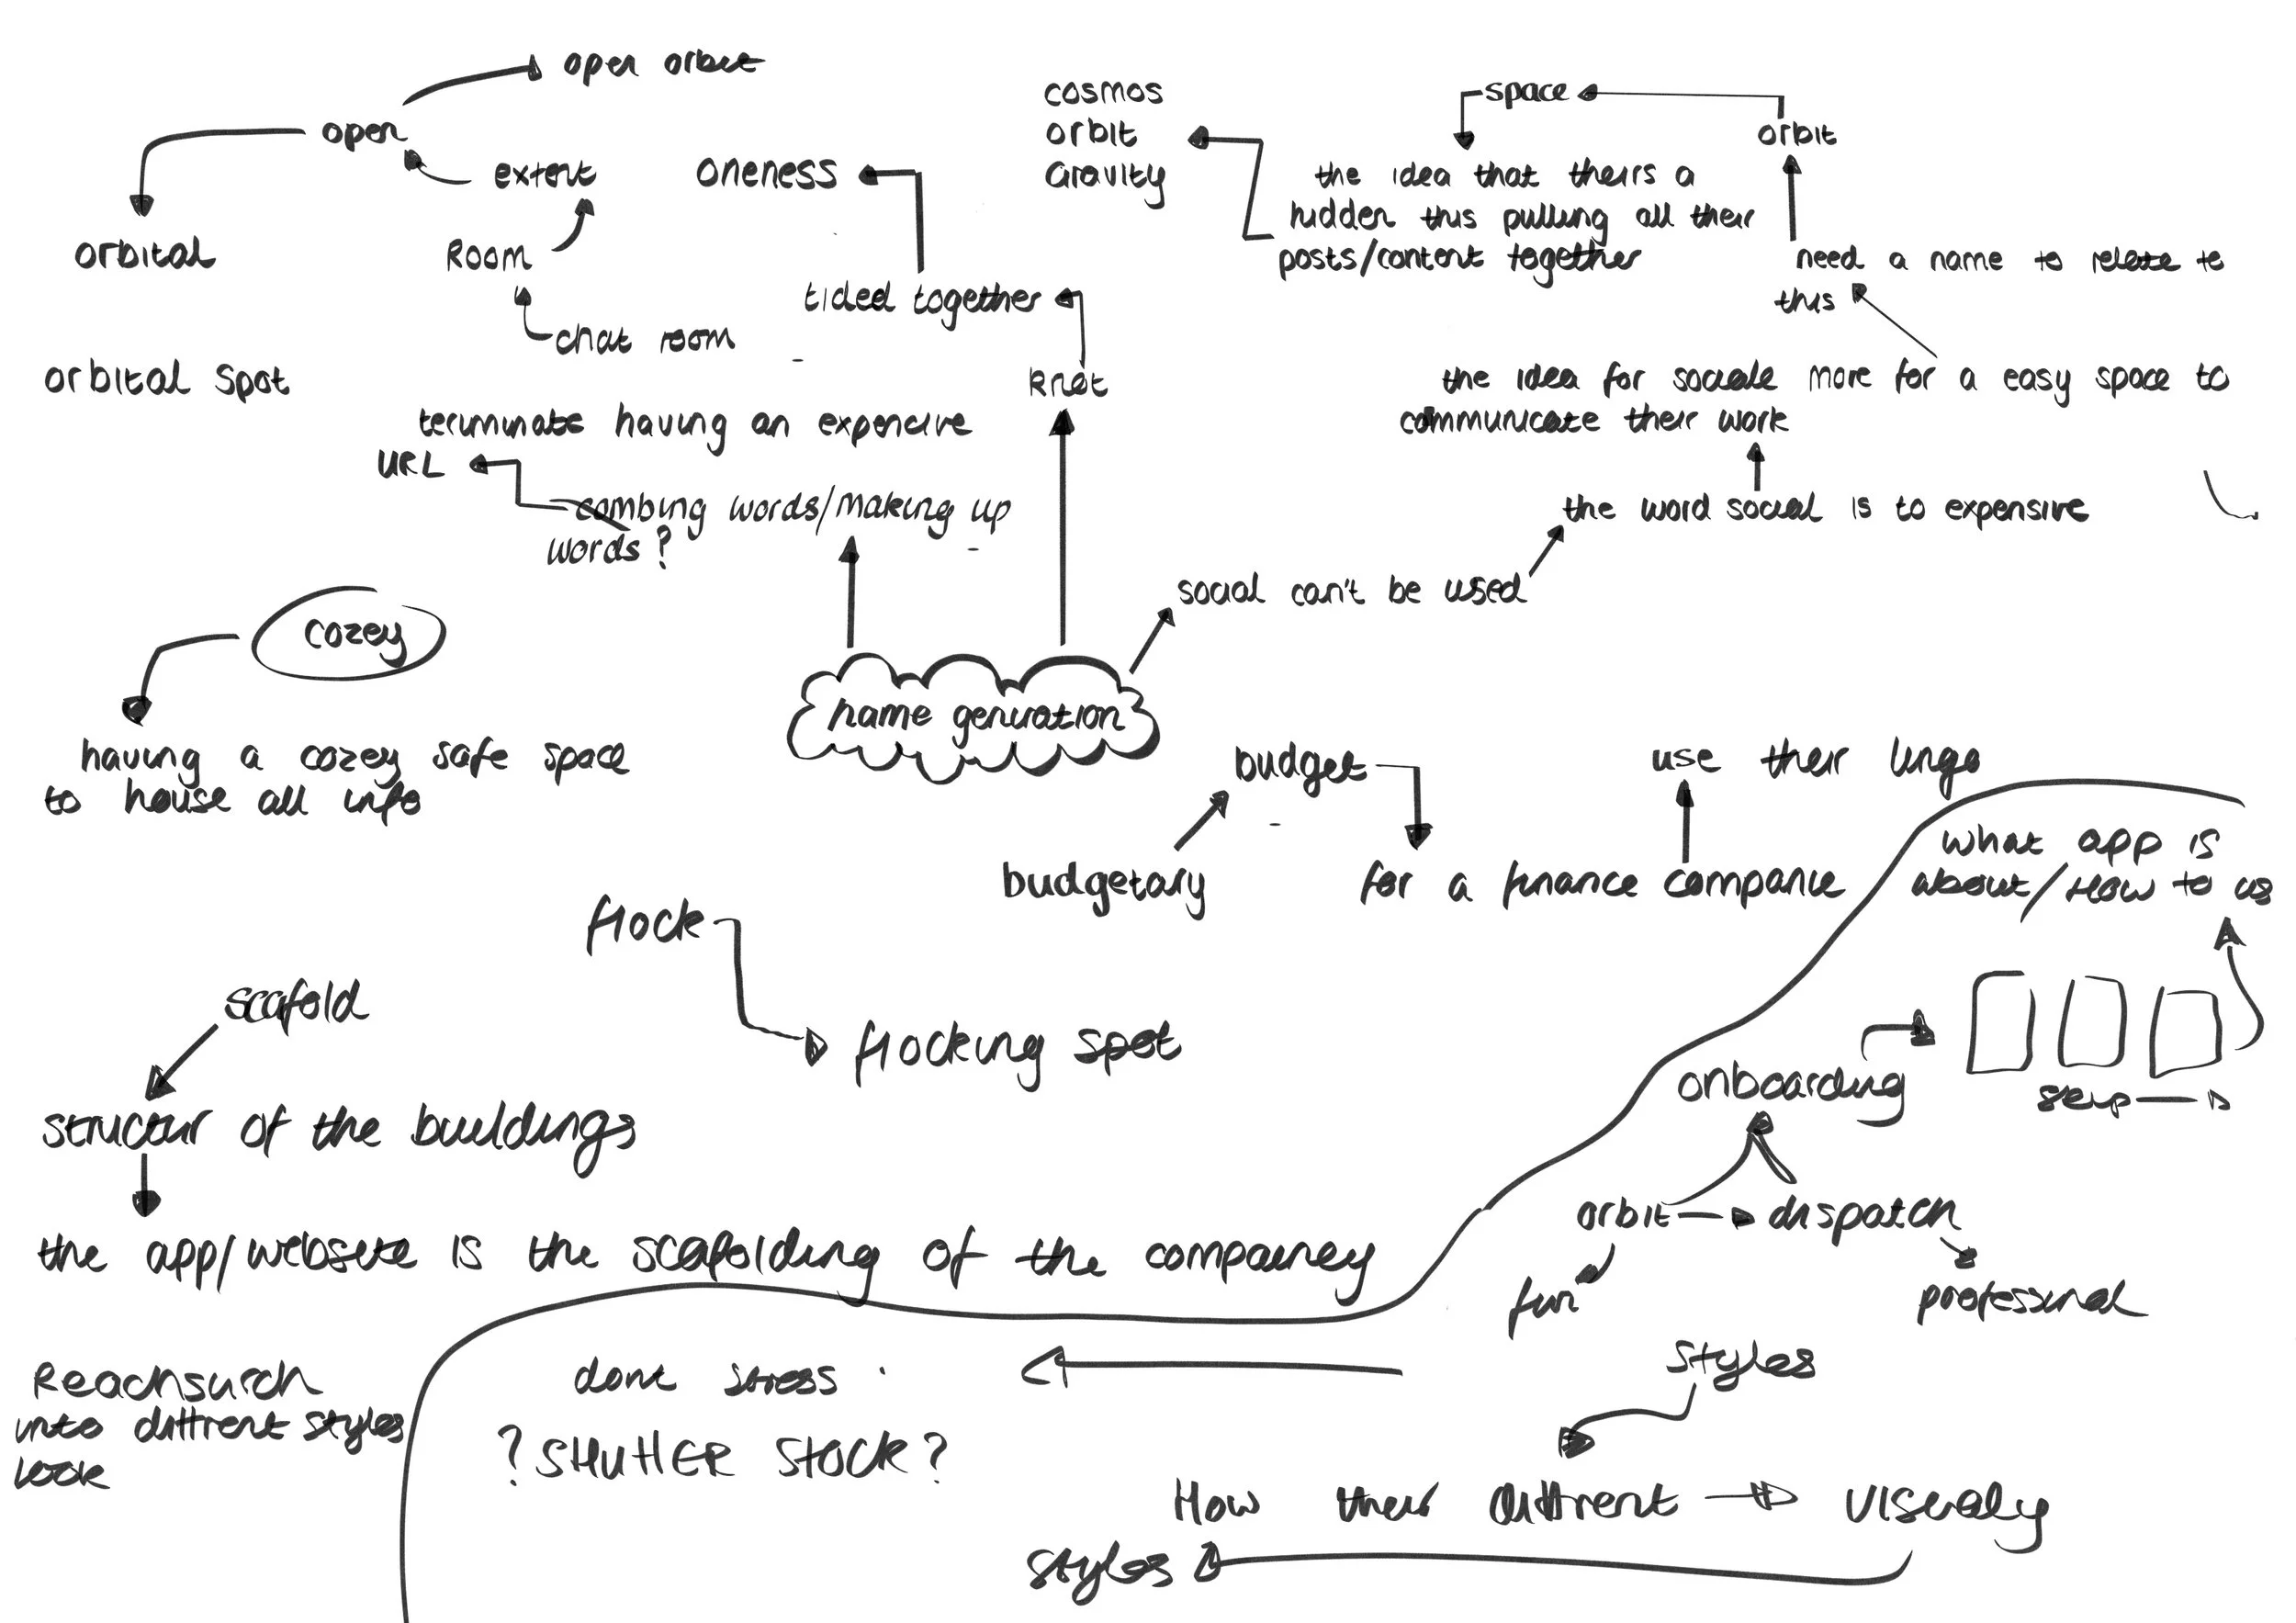 open orbit
open
extent
Room
chat room
orbital
orbital spot
oneness
tided together
knot
cosmos
orbit
Gravity
space
orbit
the idea that theirs a
hidden this pulling all their
posts/content together
need a name to relate to
this
the idea for sociale more for a easy space to
communicate their work
the word social is to expensive
social can't be used
terminate having an expencive
URL
combing words/making up
words?
name genration
cozey
having a cozey safe space
to house all info
budget
budgetary
for a finance companie
use their lingo
flock
flocking spot
scafold
structur of the buildings
the app/website is the scafolding of the compainey
what app is
about/How to us
onboarding
skip
orbit
dispatch
fun
professinal
styles
How their diffrent
visualy
styles
dont stress
? SHUTTER STOCK?
Reachsurch
into diffrent styles
look